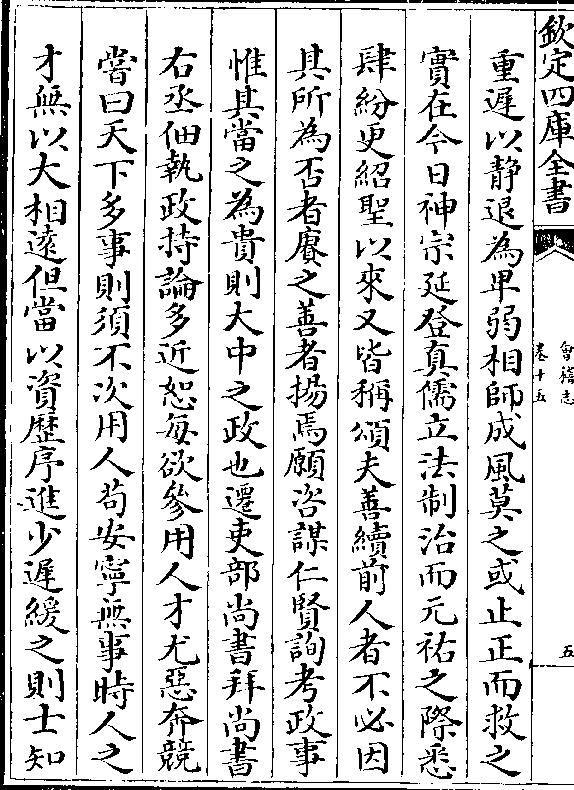 欽定四庫全書
會稽志
卷十五
五
重遲以静退為卑弱相師成風莫之或止正而救之
實在今日神宗延登真儒立法制治而元祐之際悉
肆紛更紹聖以來又皆稱頌夫善續前人者不必因
其所為否者賡之善者揚焉願咨謀仁賢詢考政事
惟其當之為貴則大中之政也遷吏部尚書拜尚書
右丞佃執政持論多近恕每欲參用人才尤惡奔競
嘗曰天下多事則須不次用人苟安寧無事時人之
才無以大相遠但當以資歴序進少遲緩之則士知